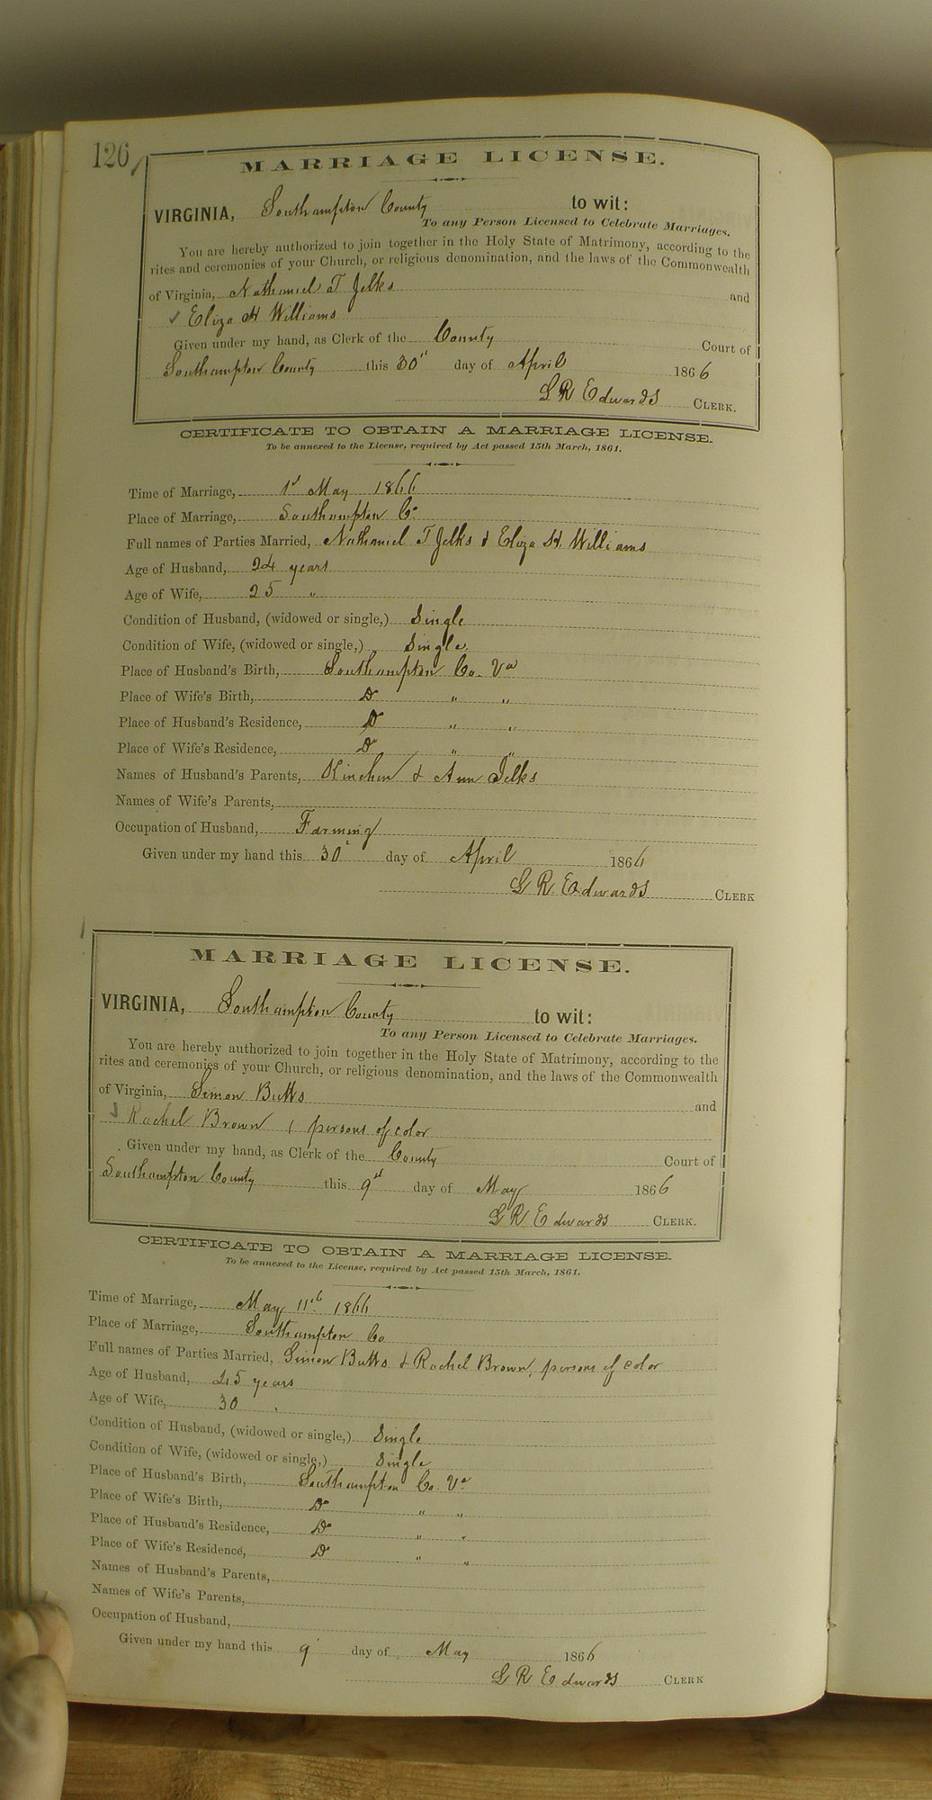 126
MARRIAGE LICENSE.
VIRGINIA, Southampton County to wit:
To any Person Licensed to Celebrate Marriages.
You are hereby authorized to join together in the Holy State of Matrimony, according to the
rites and ceremonies of your Church, or religious denomination, and the laws of the Commonwealth
of Virginia, Nathaniel T Jelks and
✓ Eliza H Williams
Given under my hand, as Clerk of the County Court of
Southampton County this 30" day of April 1866
L R Edwards CLERK.
CERTIFICATE TO OBTAIN A MARRIAGE LICENSE.
To be annexed to the License, required by Act passed 15th March, 1861.
Time of Marriage, 1st May 1866
Place of Marriage, Southampton Co.
Full names of Parties Married, Nathaniel T Jelks & Eliza H. Williams
Age of Husband, 24 years
Age of Wife, 25 "
Condition of Husband, (widowed or single,) Single
Condition of Wife, (widowed or single,) Single
Place of Husband's Birth, Southampton Co. Va
Place of Wife's Birth, Do " "
Place of Husband's Residence, Do " "
Place of Wife's Residence, Do " "
Names of Husband's Parents, Kinchen & Ann Jelks
Names of Wife's Parents,
Occupation of Husband, Farming
Given under my hand this 30 day of April 1866
L R Edwards CLERK
MARRIAGE LICENSE.
VIRGINIA, Southampton County to wit:
To any Person Licensed to Celebrate Marriages.
You are hereby authorized to join together in the Holy State of Matrimony, according to the
rites and ceremonies of your Church, or religious denomination, and the laws of the Commonwealth
of Virginia, Simon Butts and
✓ Rachel Brown, persons of color
Given under my hand, as Clerk of the County Court of
Southampton County this 9th day of May 1866
L R Edwards CLERK.
CERTIFICATE TO OBTAIN A MARRIAGE LICENSE.
To be annexed to the License, required by Act passed 15th March, 1861.
Time of Marriage, May 11th 1866
Place of Marriage, Southampton Co
Full names of Parties Married, Simon Butts & Rachel Brown, persons of color
Age of Husband, 45 years
Age of Wife, 30 "
Condition of Husband, (widowed or single,) Single
Condition of Wife, (widowed or single,) Single
Place of Husband's Birth, Southampton Co. Va
Place of Wife's Birth, Do " "
Place of Husband's Residence, Do " "
Place of Wife's Residence, Do " "
Names of Husband's Parents,
Names of Wife's Parents,
Occupation of Husband,
Given under my hand this 9 day of May 1866
L R Edwards CLERK